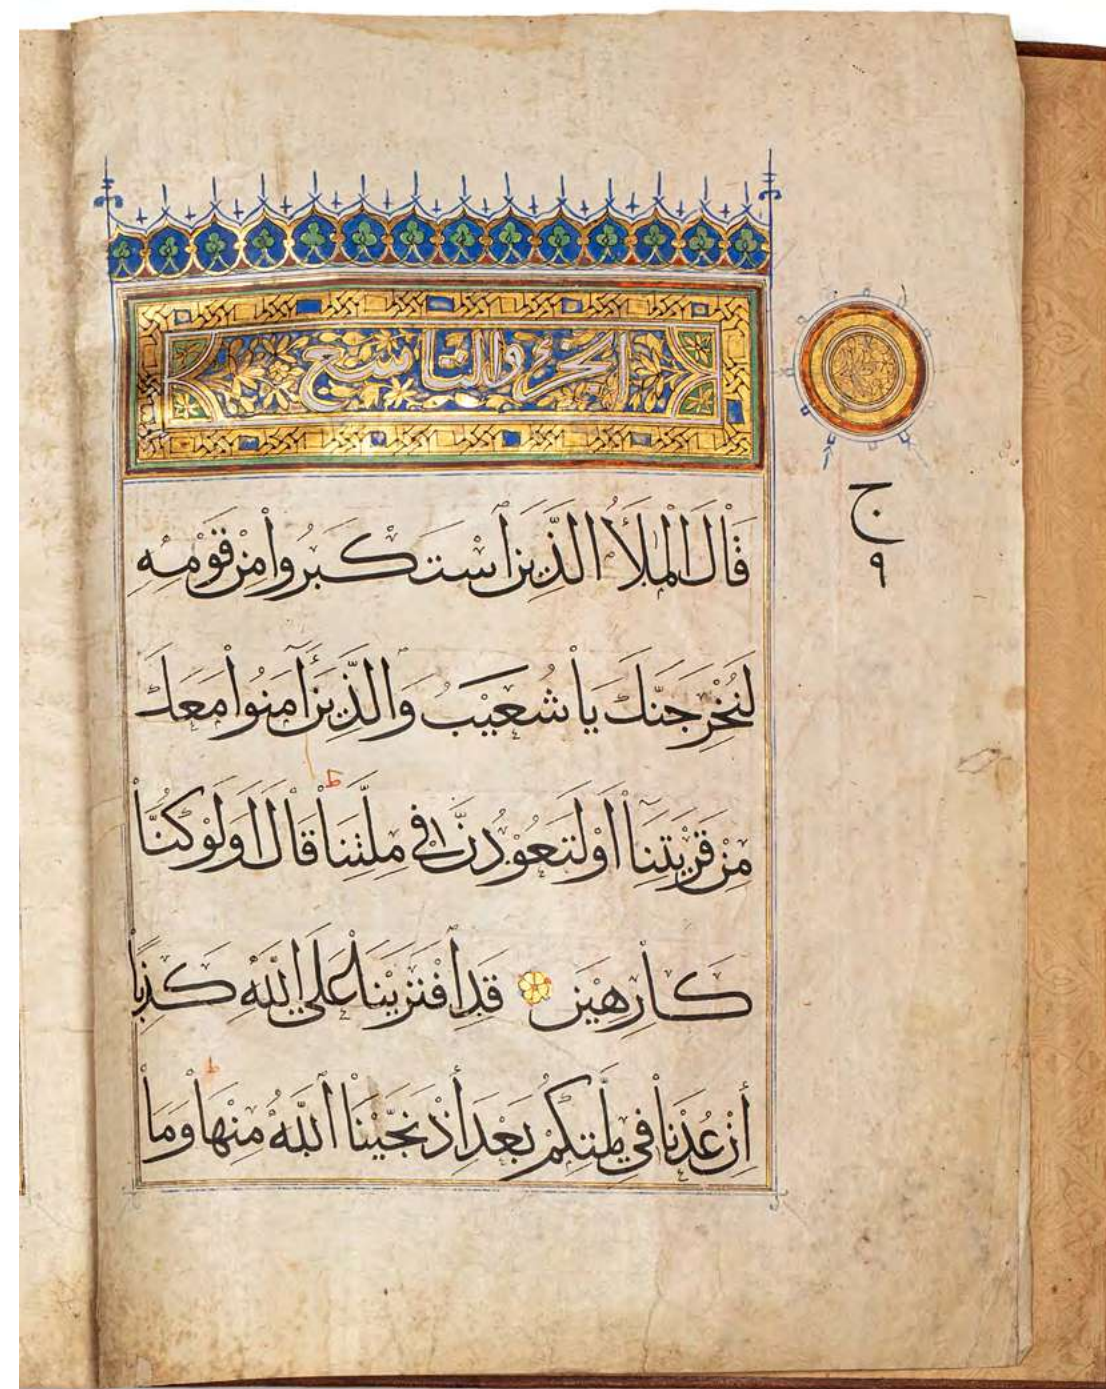 الجزؤ والتاسع
ج
٩
قَالَ الْمَلَأُ الَّذِينَ اسْتَكْبَرُوا مِنْ قَوْمِهِ
لَنُخْرِجَنَّكَ يَا شُعَيْبُ وَالَّذِينَ آمَنُوا مَعَكَ
مِنْ قَرْيَتِنَا أَوْ لَتَعُودُنَّ فِي مِلَّتِنَا ط قَالَ أَوَلَوْ كُنَّا
كَارِهِينَ قَدِ افْتَرَيْنَا عَلَى اللَّهِ كَذِبًا
أَنْ عُدْنَا فِي مِلَّتِكُمْ بَعْدَ أذْ نَجَّيْنَا اللَّهُ مِنْهَا ط وَمَا